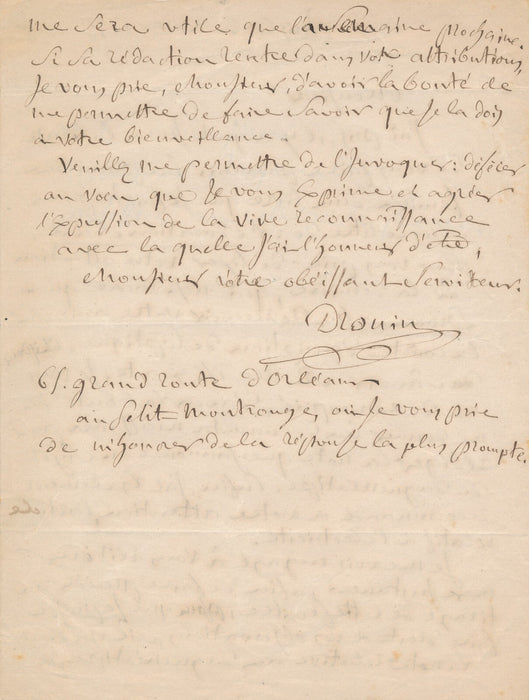 me sera utile que la semaine prochaine.
Si sa rédaction rentre dans vos attributions,
Je vous prie, Monsieur, d'avoir la bonté de
me permettre de faire savoir que je la dois
à votre bienveillance.
Veuillez me permettre de l'Invoquer : déférer
au voeu que Je vous Exprime et agréer
l'Expression de la vive reconnaissance
avec la quelle J'ai l'honneur d'être,
Monsieur votre obéissant Serviteur.
Drouin
65. grand route d'Orléans
au Petit Montrouge, où Je vous prie
de m'honorer de la réponse la plus prompte.